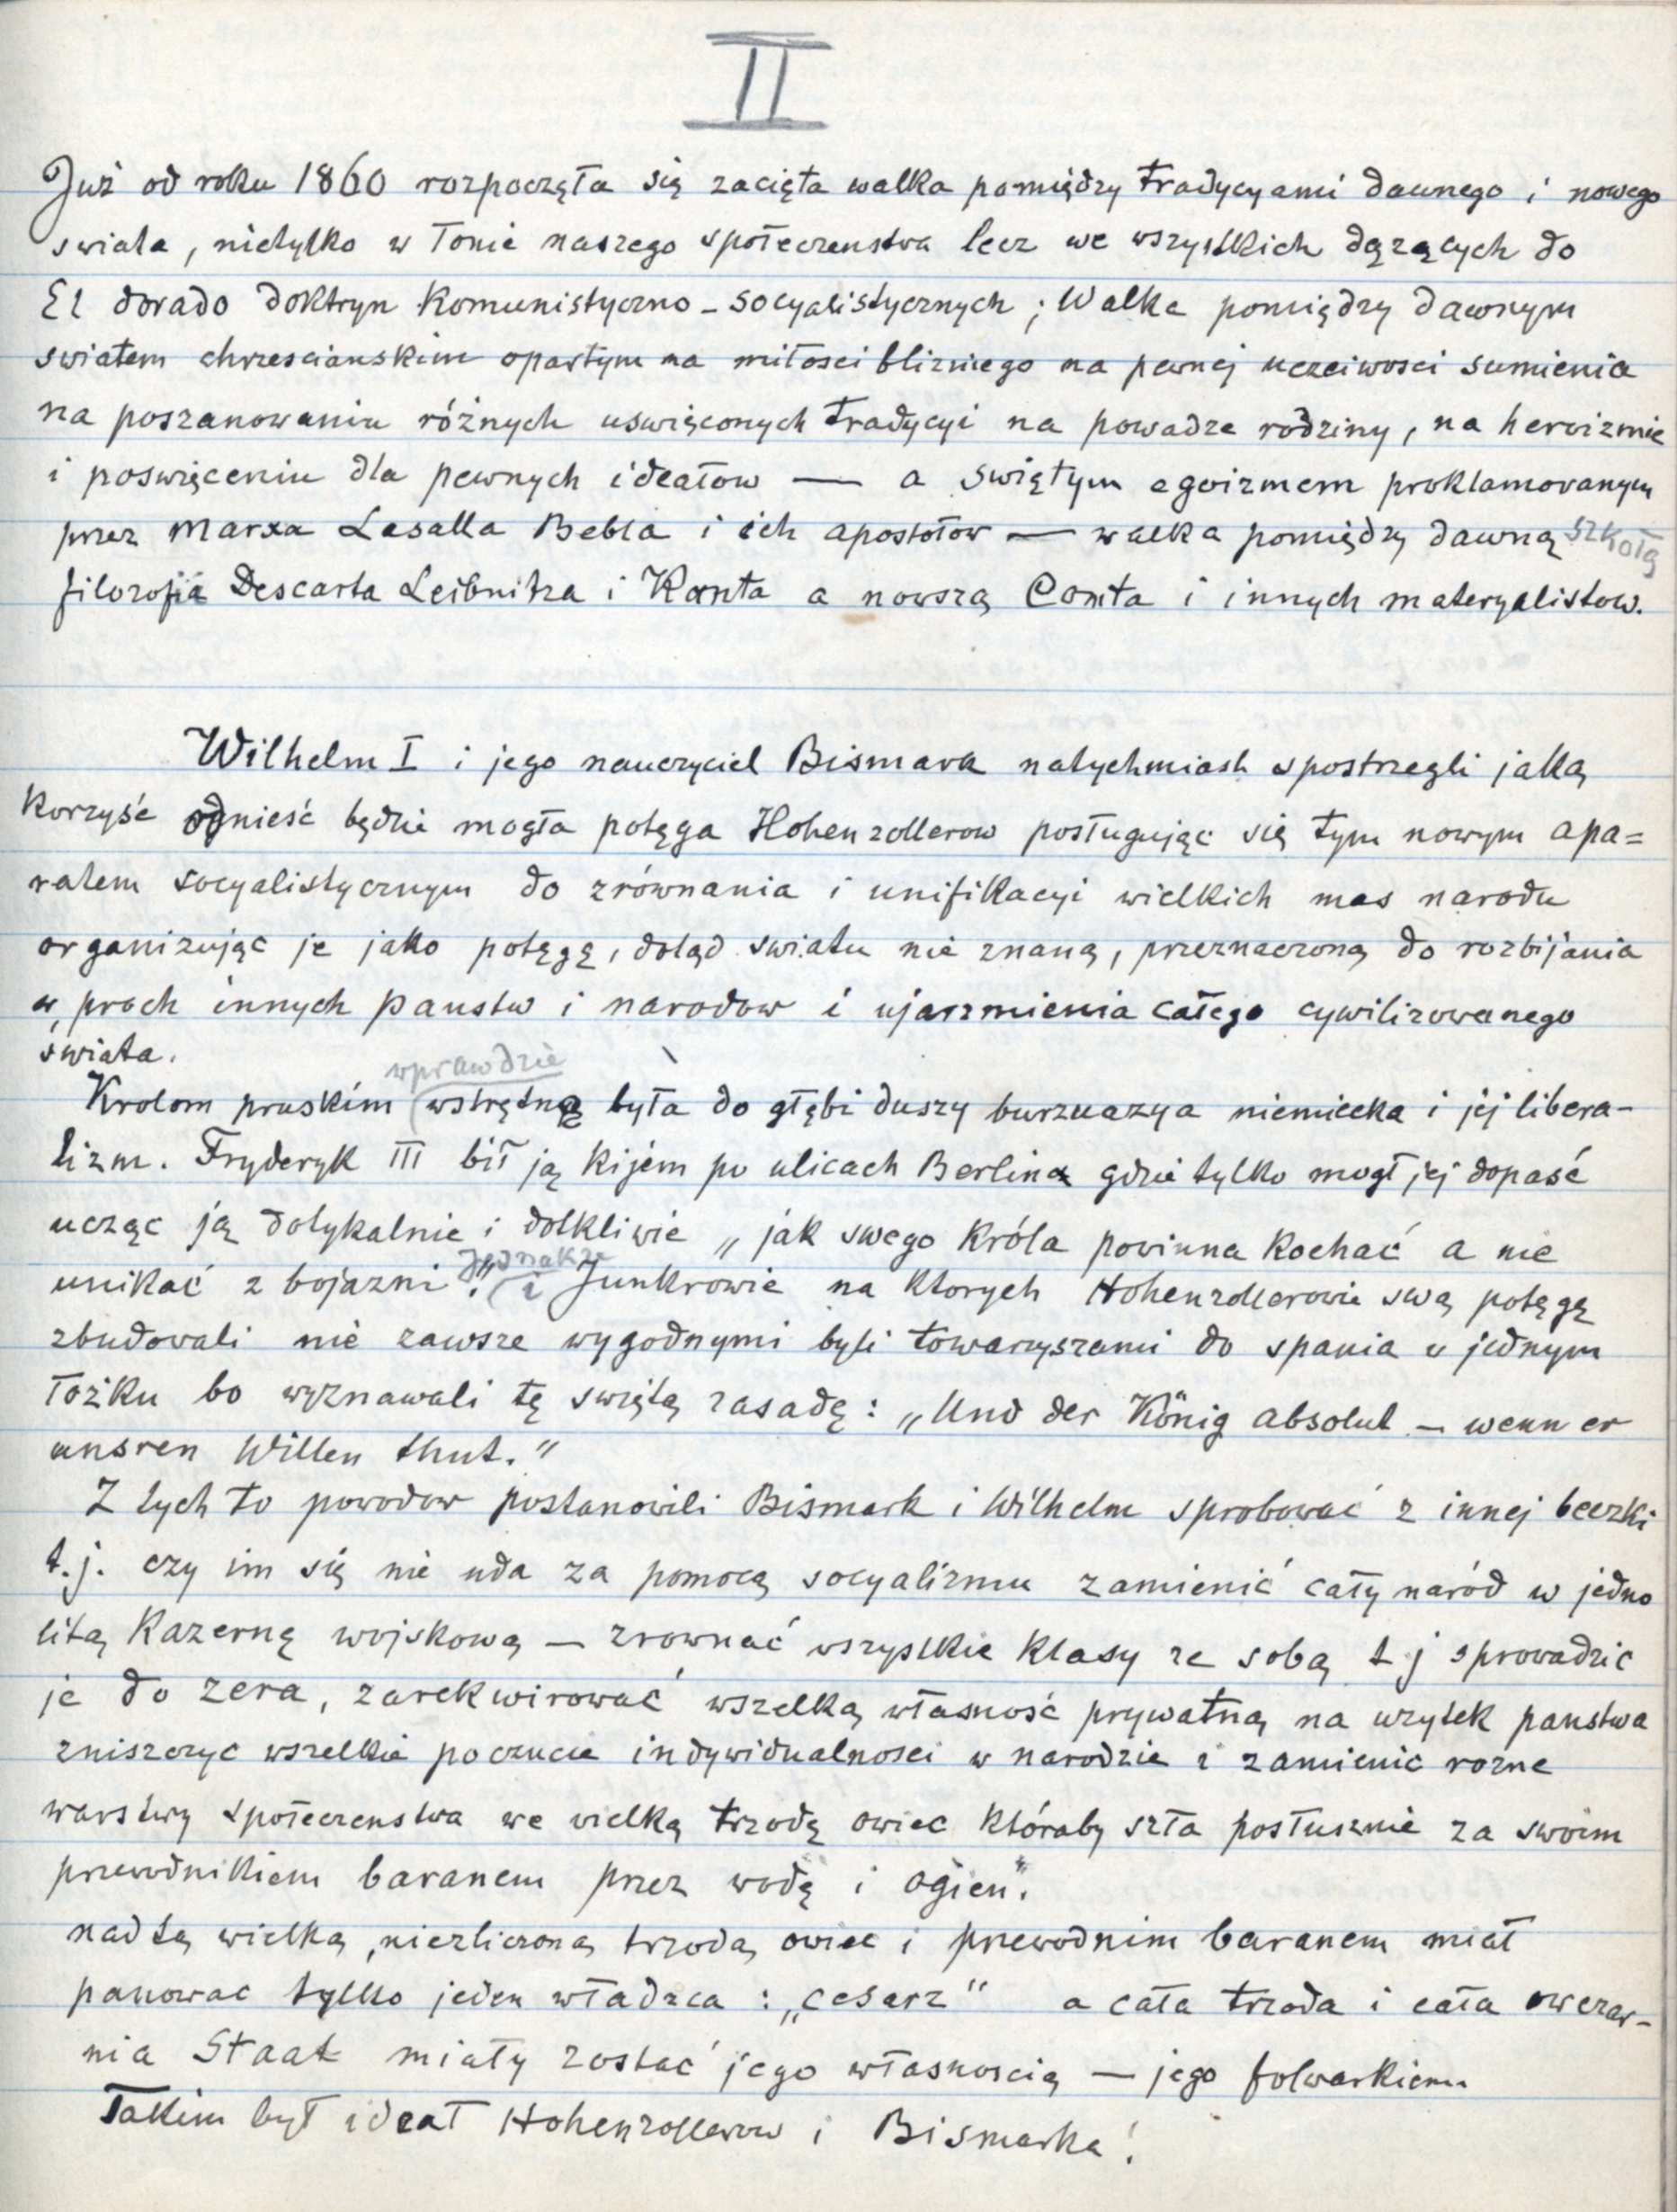 II
Już od roku 1860 rozpoczęła się zacięta walka pomiędzy tradycyami dawnego i nowego
swiata, nietylko w łonie naszego społeczenstwa lecz we wszystkich dązących do
El dorado doktryn komunistyczno - socyalistycznych ; Walka pomiędzy dawnym
swiatem chrzescianskim opartym na miłosci blizniego na pewnej uczciwosci sumienia
na poszanowaniu różnych uswięconych tradycyi na powadze rodziny, na heroizmie
i poswięceniu dla pewnych ideałow — a swiętym egoizmem proklamovanym
przez Marxa Lasalla Bebla i ich apostołow — walka pomiędzy dawną szkołą
filozofią Descarta Leibnitza i Kanta a nowszą Comta i innych materyalistow.
Wilhelm I i jego nauczyciel Bismark natychmiast spostrzegli jaką
korzyść odnieść będzie mogła potęga Hohenzollerow posługując się tym nowym apa=
ratem socyalistycznym do zrównania i unifikacyi wielkich mas narodu
organizując je jako potęgę, dotąd swiatu nie znaną, przeznaczoną do rozbijania
w proch innych panstw i narodow i ujarzmienia całego cywilizowanego
swiata.
wprawdzie
Krolom pruskim wstrętną była do głębi duszy burzuazya niemiecka i jej libera-
lizm. Fryderyk III bił ją kijem po ulicach Berlina gdzie tylko mogł jej dopaść
ucząc ją dotykalnie i dotkliwie „jak swego Króla powinna kochać a nie
Jednakże
unikać z bojazni." i Junkrowie na ktorych Hohenzollerowie swą potęgę
zbudowali nie zawsze wygodnymi byli towarzyszami do spania w jednym
łożku bo wyznawali tę swiętą zasadę : „Und der König absolut — wenn er
unsren Willen thut."
Z tych to powodow postanowili Bismark i Wilhelm sprobować z innej beczki
t.j. czy im się nie uda za pomocą socyalizmu zamienić cały naród w jedno
litą kazernę wojskową — zrownać wszystkie klasy ze sobą t j sprowadzic
je do zera, zarekwirować wszelką własność prywatną na uzytek panstwa
zniszczyc wszelkie poczucie indywidualnosci w narodzie i zamienic rozne
warstwy społeczenstwa we wielką trzodę owiec któraby szła posłusznie za swoim
przewodnikiem baranem przez wodę i ogien".
nad tą wielką, niezliczoną trzodą owiec i przewodnim baranem miał
panowac tylko jeden władzca : „cesarz" a cała trzoda i cała owczar-
nia Staat miały zostać jego własnoscią — jego folwarkiem
Takim był ideał Hohenzollerow i Bismarka!